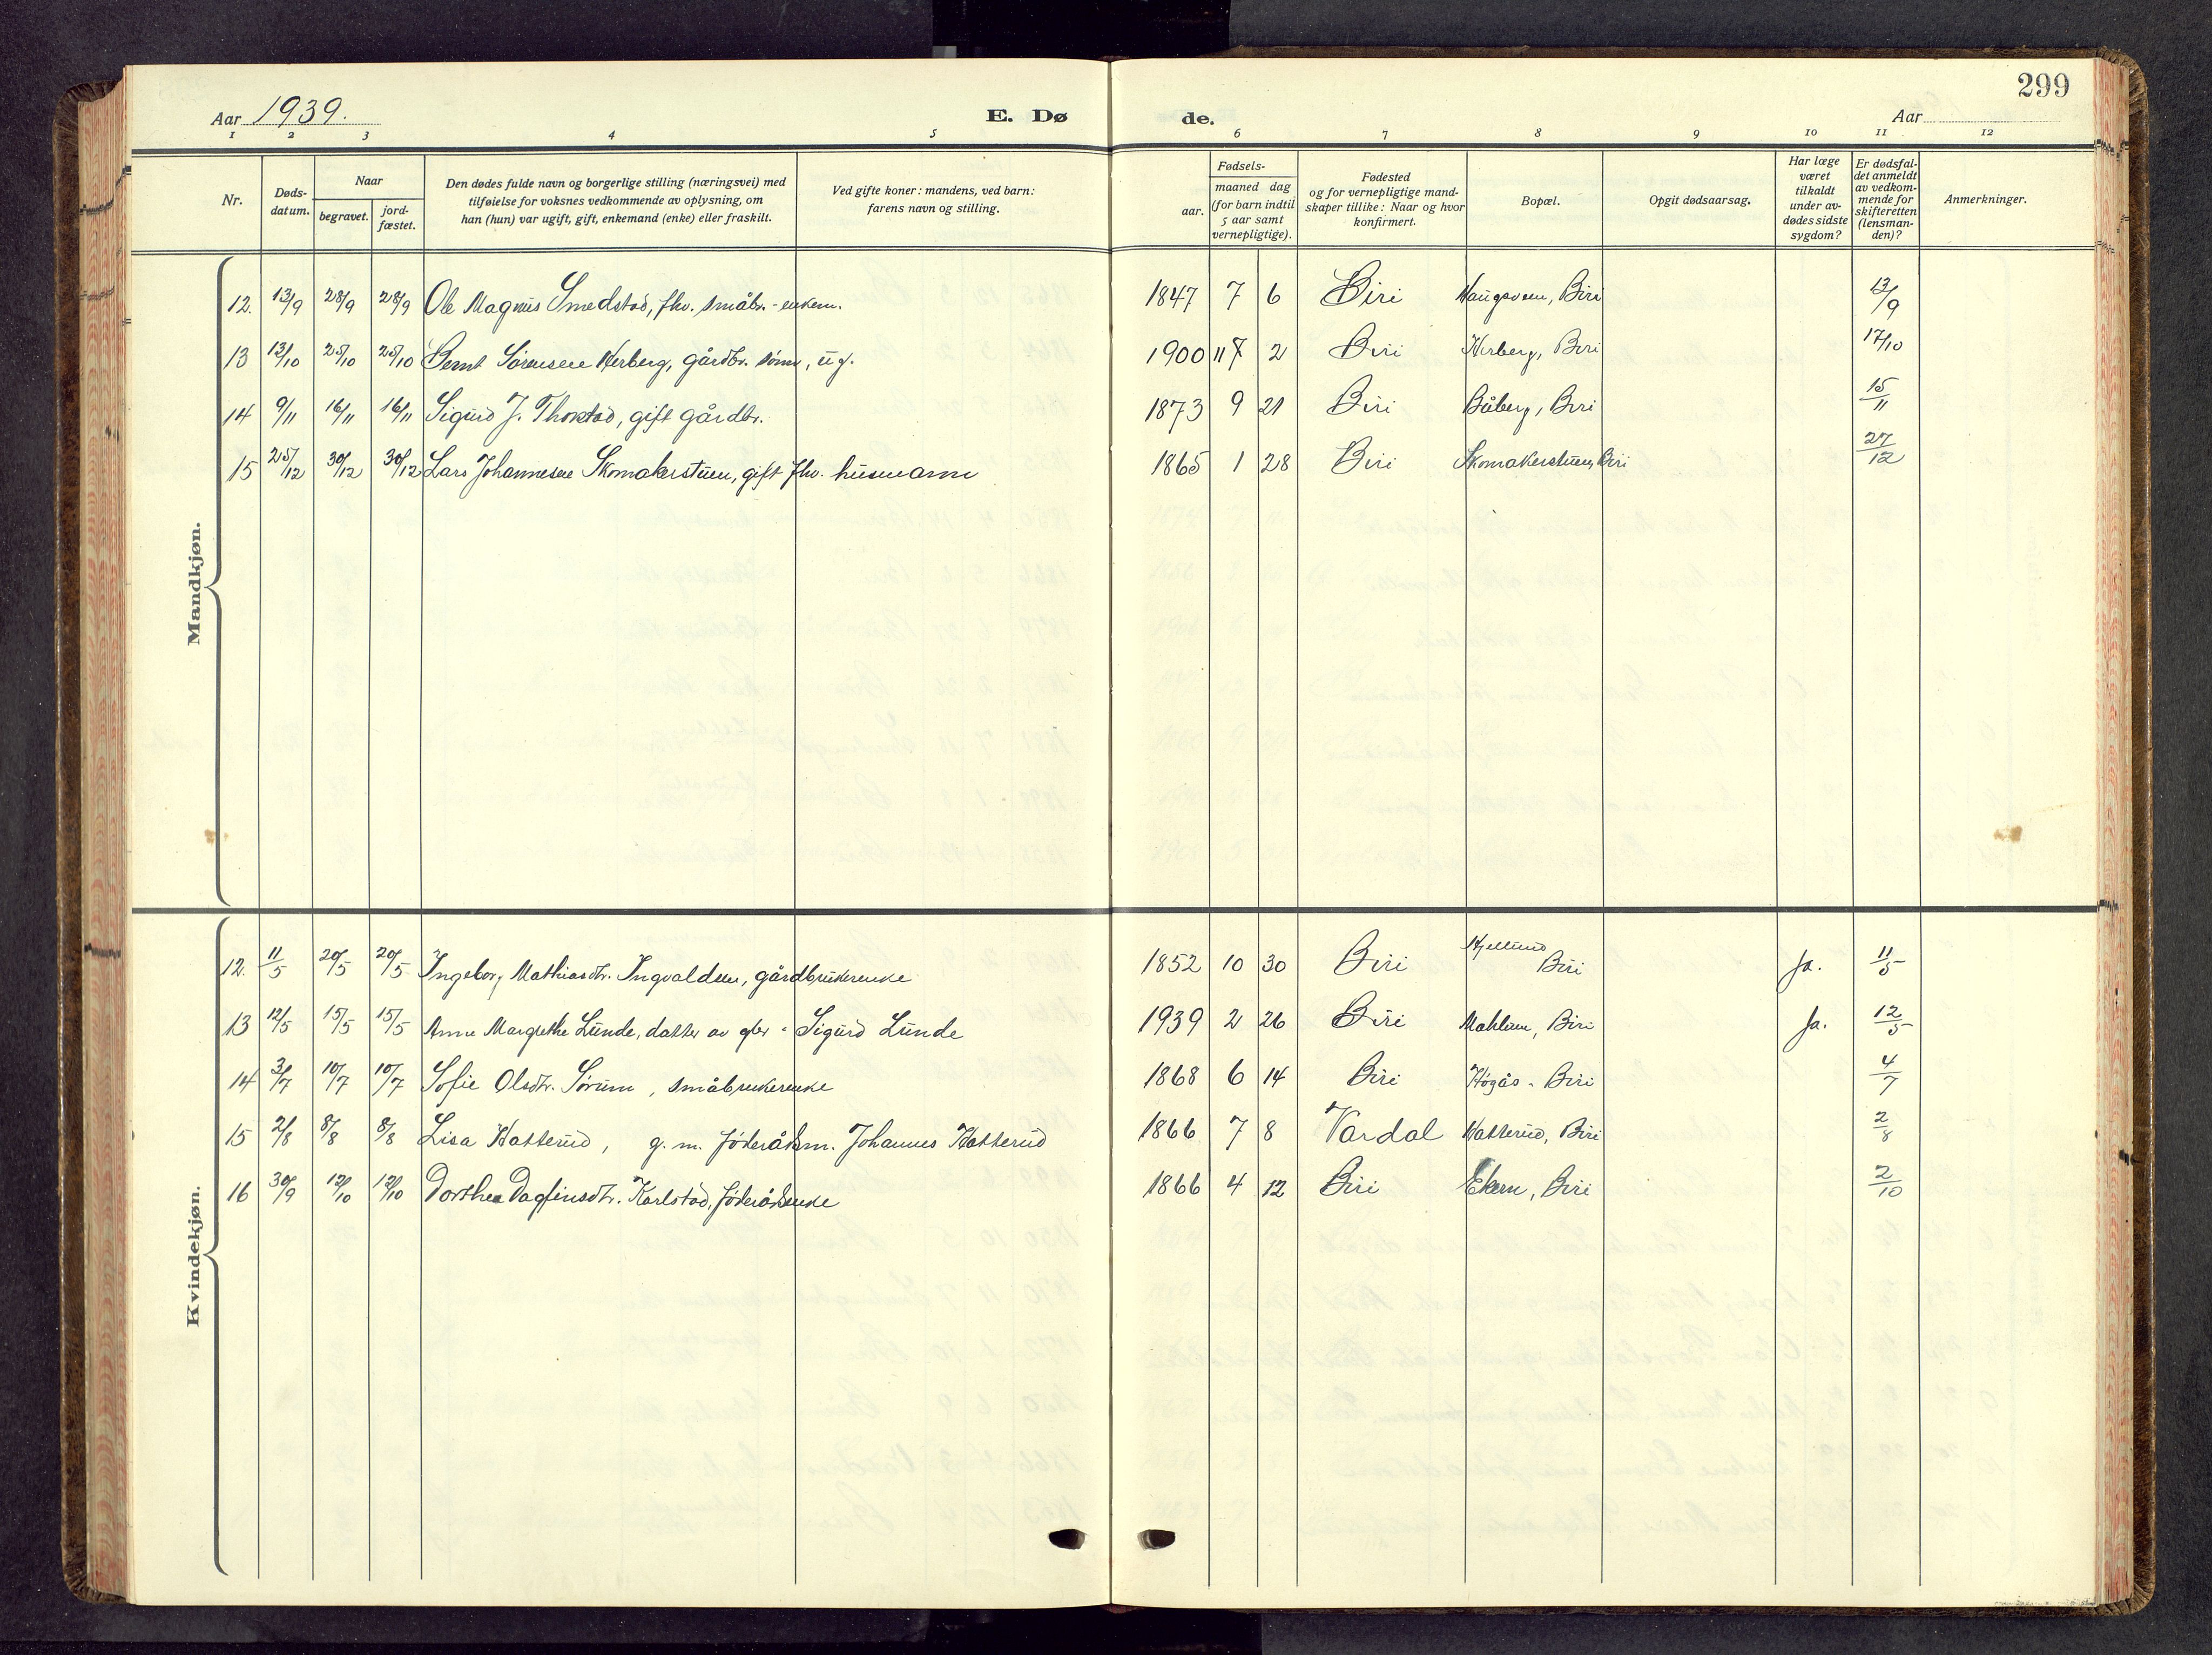 299
Aar 1939.
E. Dø
de.
Aar
1 2 3 4 5 6 7 8 9 10 11 12
Nr.
Døds-
datum.
Naar
begravet.
jord-
fæstet.
Den dødes fulde navn og borgerlige stilling (næringsvei) med
tilføielse for voksnes vedkommende av oplysning, om
han (hun) var ugift, gift, enkemand (enke) eller fraskilt.
Ved gifte koner: mandens, ved barn:
farens navn og stilling.
Fødsels-
aar.
maaned dag
(for barn indtil
5 aar samt
vernepligtige).
Fødested
og for vernepligtige mand-
skaper tillike: Naar og hvor
konfirmert.
Bopæl.
Opgit dødsaarsag.
Har læge
været
tilkaldt
under av-
dødes sidste
sygdom?
Er dødsfal-
det anmeldt
av vedkom-
mende for
skifteretten
(lensman-
den)?
Anmerkninger.
Mandkjøn.
12. 13/9 28/9 28/9 Ole Magnus Smedstad, fhv. småbr. - enkem. 1847 7 6 Biri Haugsveen, Biri 13/9
13 13/10 25/10 25/10 Bernt Sørensen Kerberg, gårdbr. sønn, ug. 1900 11 2 Biri Kerberg, Biri 17/10
14 9/11 16/11 16/11 Sigurd J. Thorstad, gift gårdbr. 1873 9 21 Biri Båberg, Biri 15/11
15 25/12 30/12 30/12 Lars Johannesen Skomakerstuen, gift fhv. husmann 1865 1 28 Biri Skomakerstuen, Biri 27/12
Kvindekjøn.
12. 11/5 20/5 20/5 Ingeborg Mathiasdtr. Ingvaldsen, gårdbrukerenke 1852 10 30 Biri Biri Ja. 11/5
13 12/5 15/5 15/5 Anne Margrethe Lunde, datter av gbr - Sigurd Lunde 1939 2 26 Biri Mahlum, Biri Ja. 12/5
14 3/7 10/7 10/7 Sofie Olsdtr. Sørum, småbrukerenke 1868 6 14 Biri Høgås - Biri 4/7
15 2/8 8/8 8/8 Lisa Hatterud, g. m. føderådsm. Johannes Hatterud 1866 7 8 Vardal Hatterud, Biri 2/8
16 30/9 12/10 12/10 Dorthea Dagfinsdtr. Karlstad, føderådsenke 1866 4 12 Biri Ekern, Biri 2/10